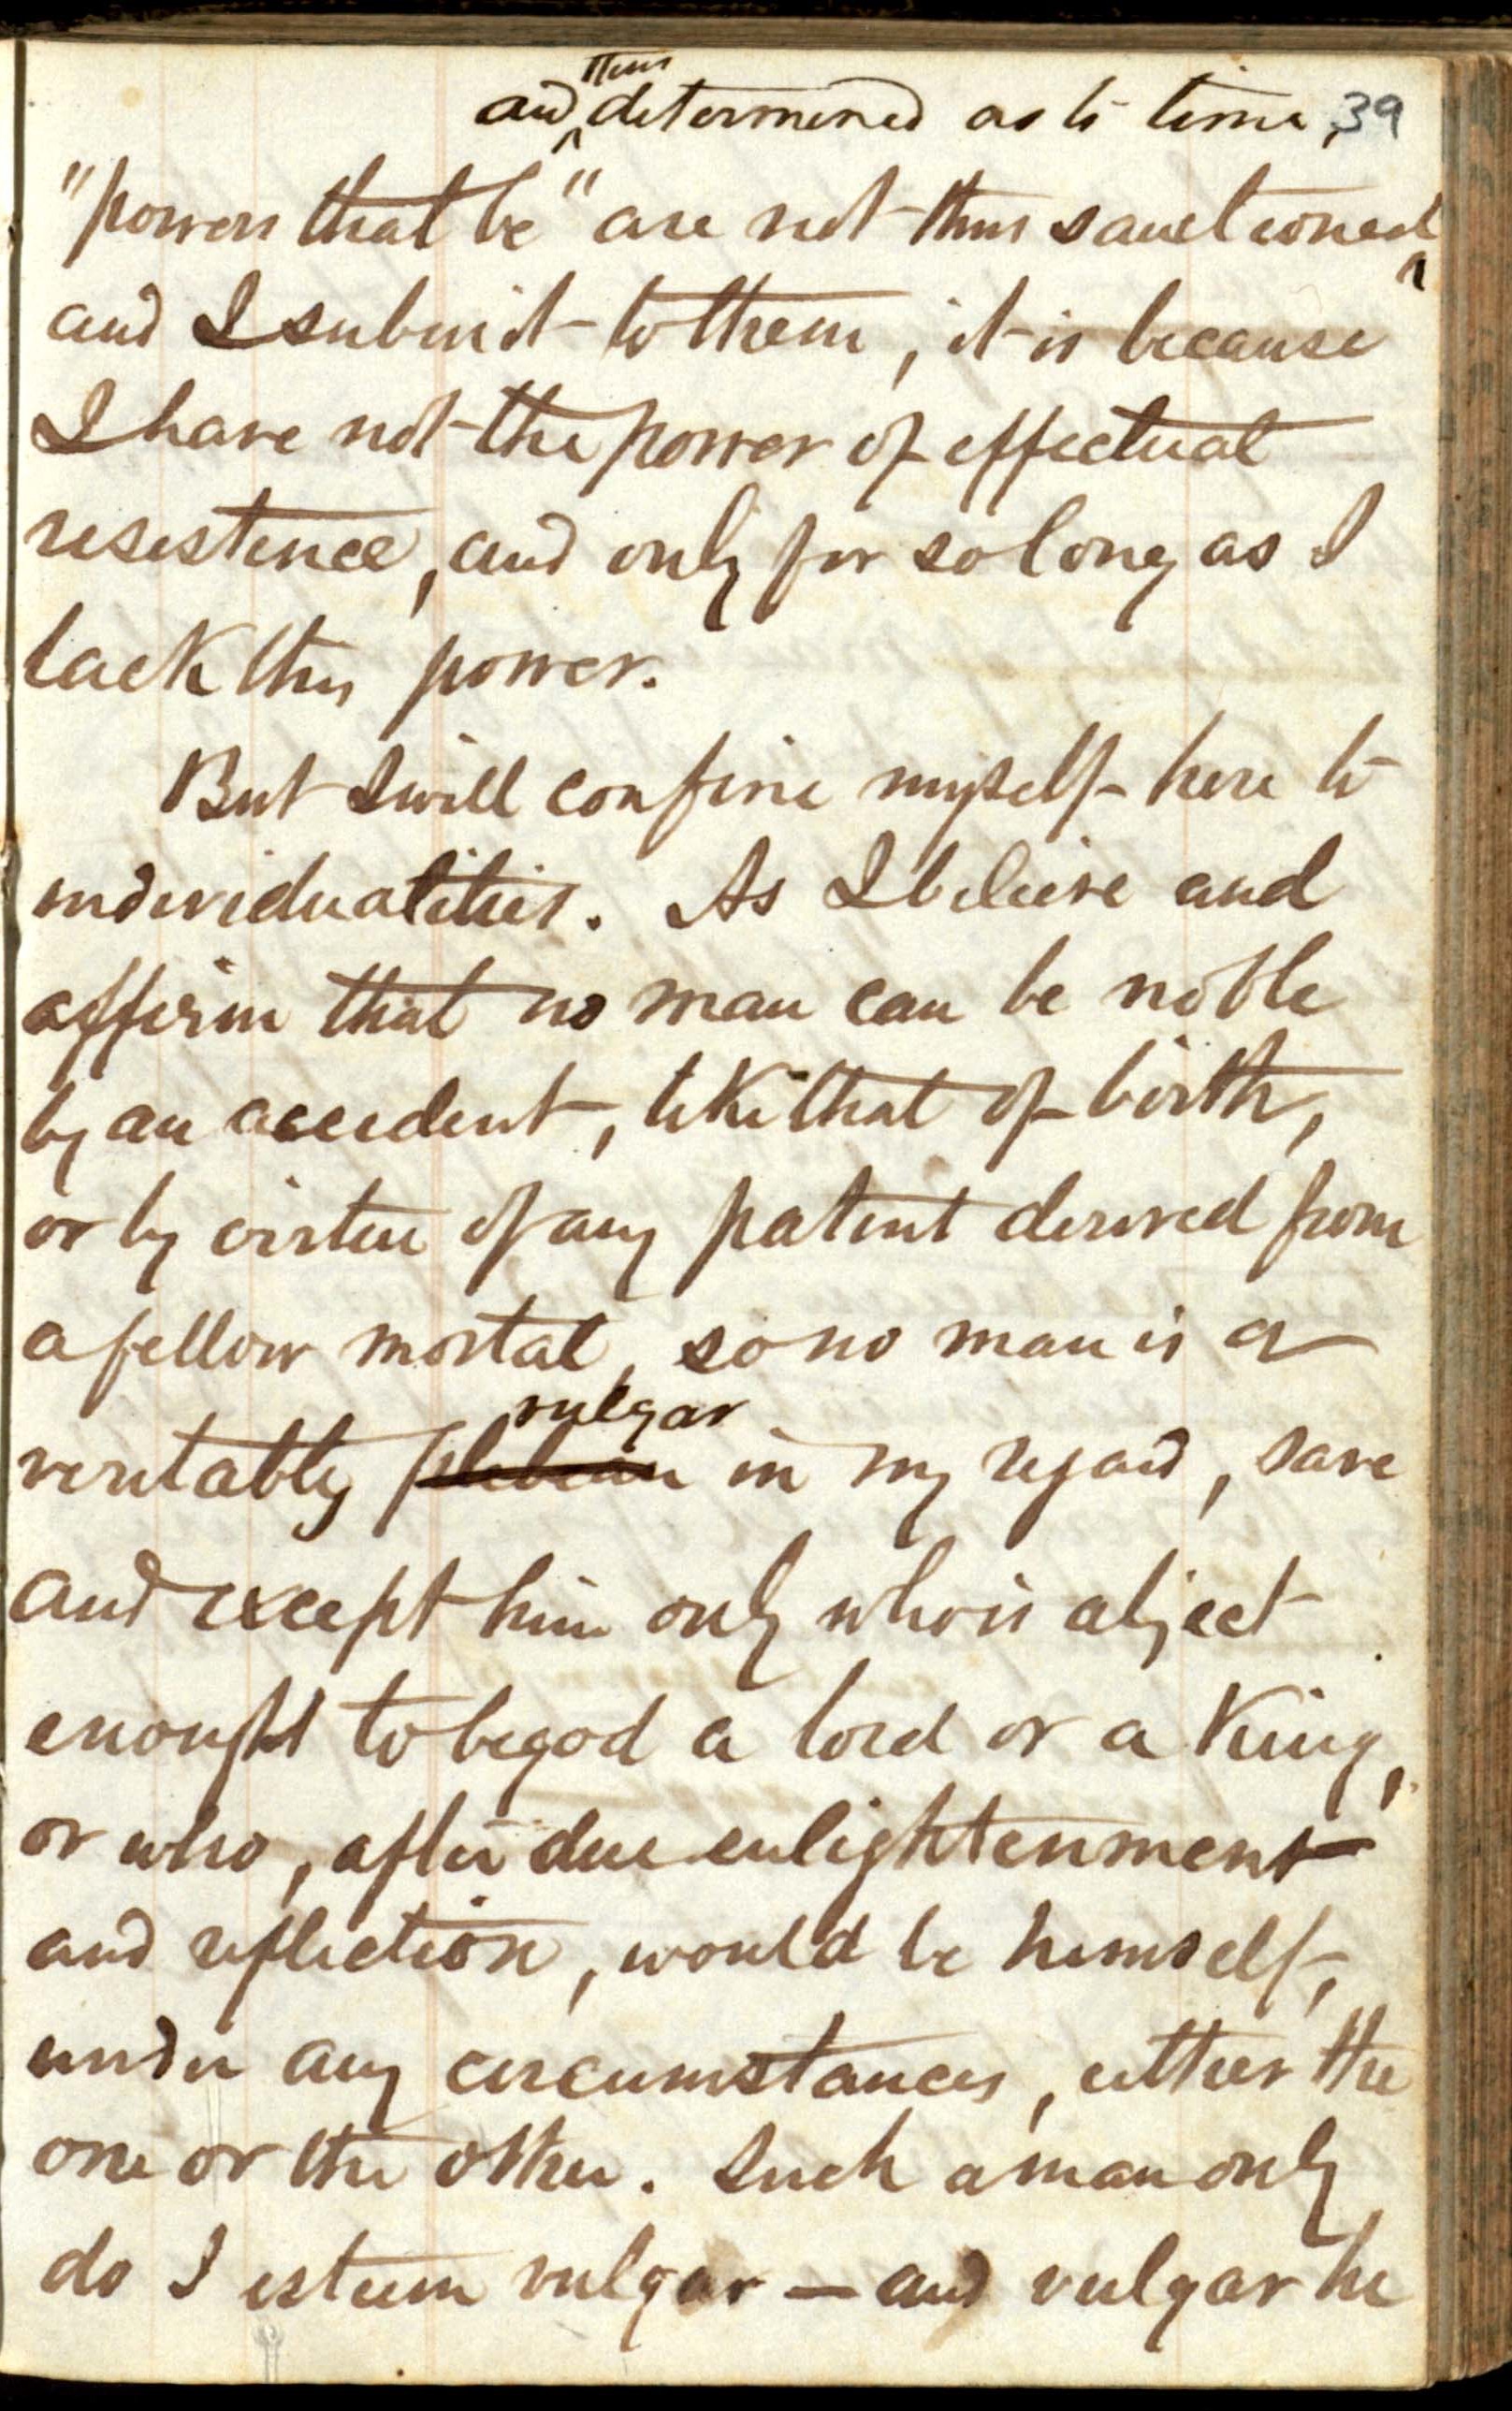 thus
and determined as to time, 39
"powers that be" are not thus sanctioned
and I submit to them, it is because
I have not the power of effectual
resistence, and only for so long as I
lack this power.
But I will confine myself here to
individualities. As I believe and
affirm that no man can be noble
by an accident, like that of birth,
or by virtue of any patent derived from
a fellow mortal, so no man is a
vulgar
veritably plebean in my regard, save
and except him only who is abject
enough to begod a lord or a King,
or who, after due enlightenment
and reflection, would be himself,
under any circumstances, either the
one or the other. Such a man only
do I esteem vulgar — and vulgar he